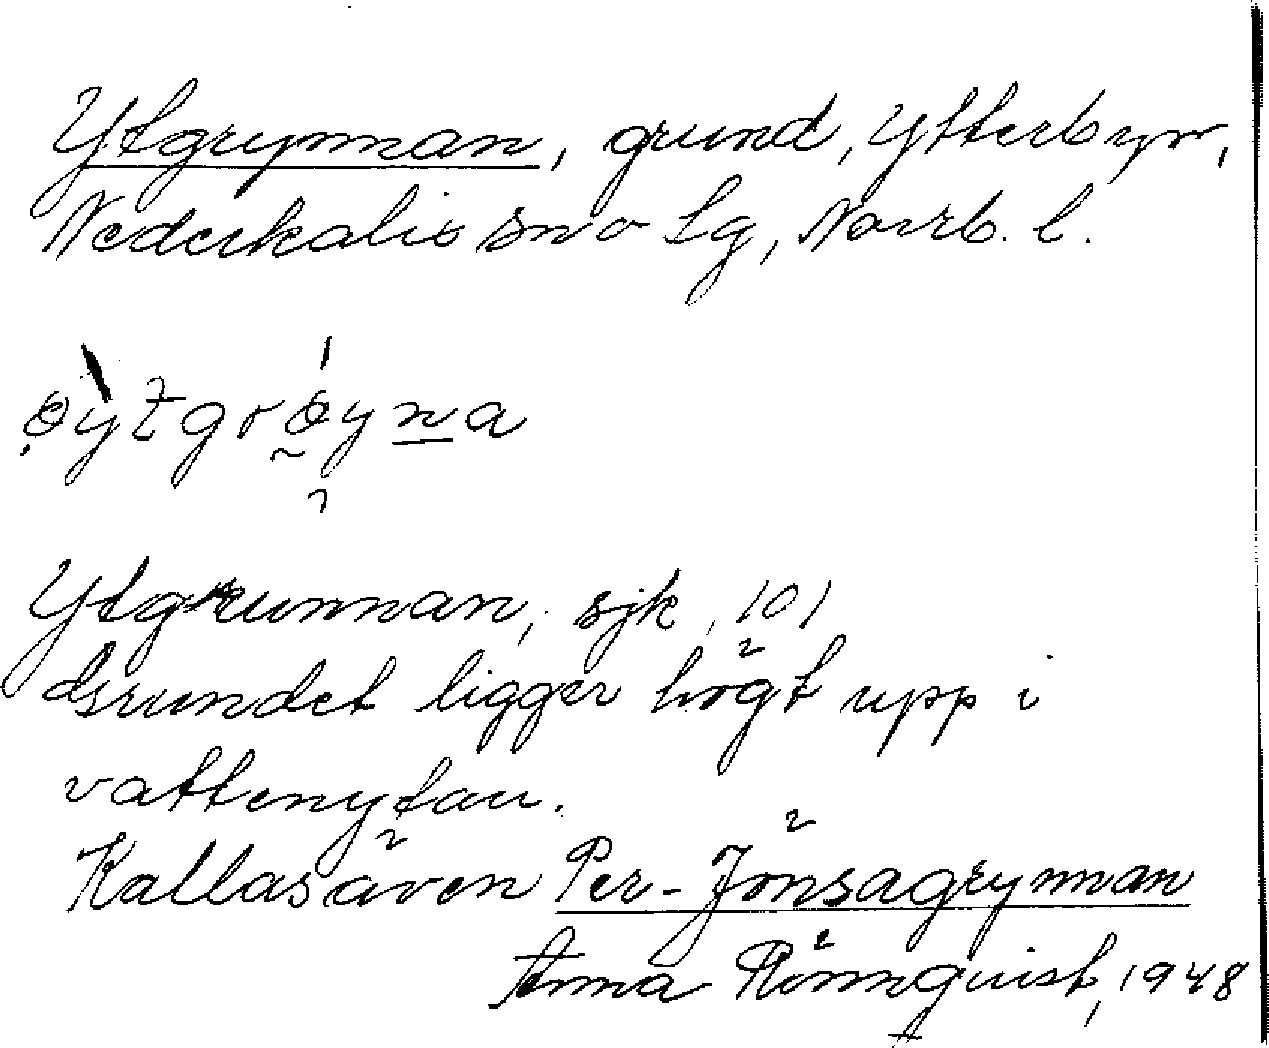 Ytgrynnan, grund, Ytterbyn,
Nederkalix sn o Lg, Norrb. l.
Ytgrunnan, sjk, 101
Grundet ligger högt upp i
vattenytan.
Kallas även Per-Jönsagrynnan
Anna Rönnquist, 1948